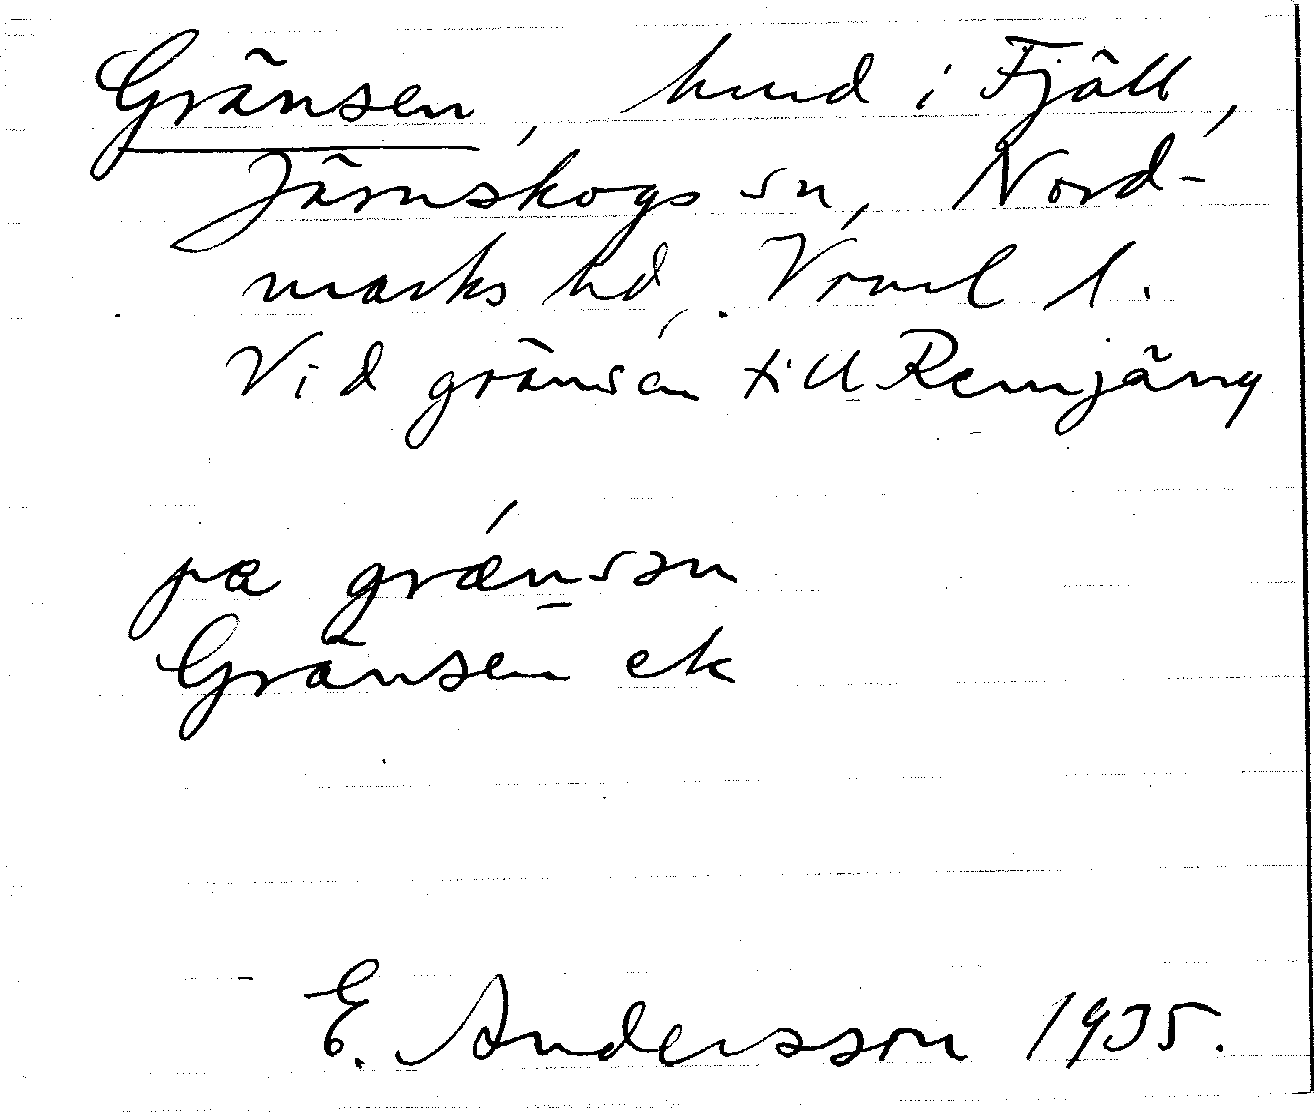 Gränsen, hmd i Fjäll,
Järnskogs sn, Nord-
marks hd, Vrml l.
Vid gränsen till Remjäng
pæ grǽn̲sən
Gränsen ek
E. Andersson 1935.